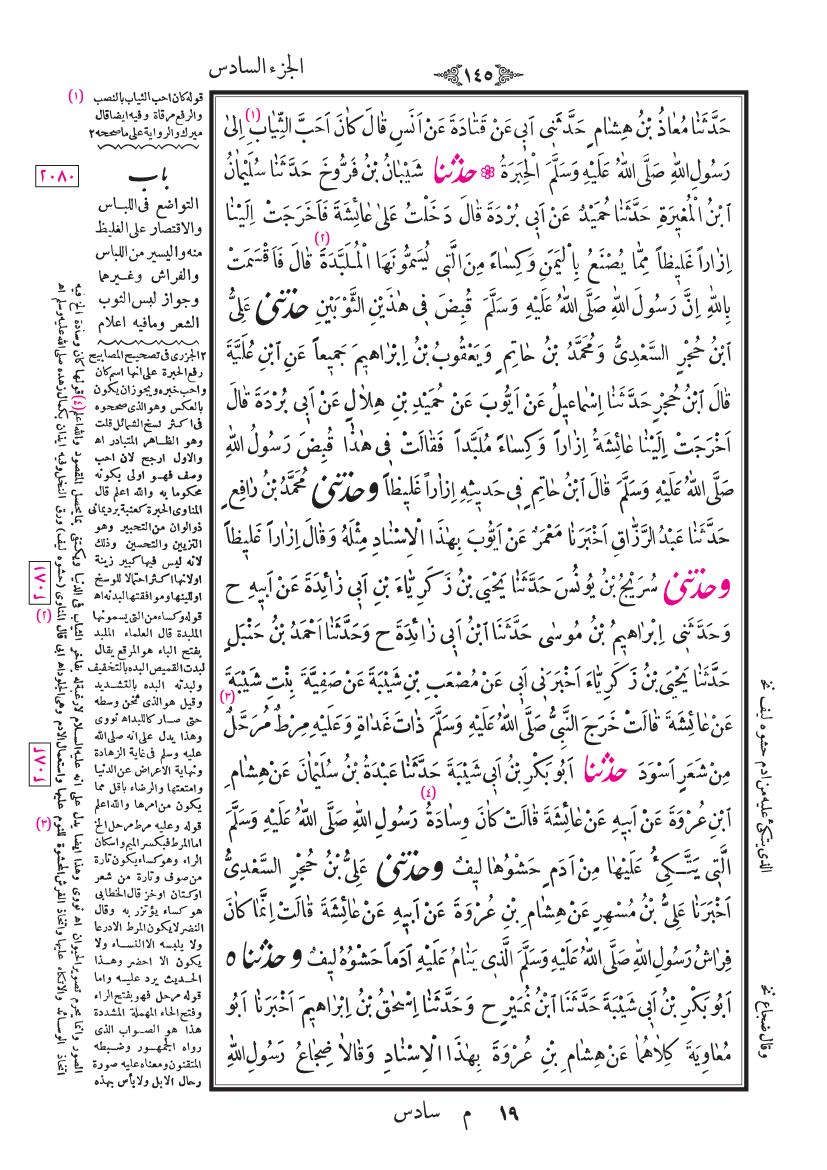 الجزء السادس
١٤٥
حَدَّثَنَا مُعَاذُ بْنُ هِشَامٍ حَدَّثَنِى أَبِى عَنْ قَتَادَةَ عَنْ أَنَسٍ قَالَ كَانَ أَحَبَّ الثِّيَابِ (١) إِلىٰ
رَسُولِ اللهِ صَلَّى اللهُ عَلَيْهِ وَسَلَّمَ الْحِبَرَةُ ۞ حدثنا شَيْبَانُ بْنُ فَرُّوخَ حَدَّثَنَا سُلَيْمَانُ
ابْنُ الْمُغِيرَةِ حَدَّثَنَا حُمَيْدٌ عَنْ أَبِى بُرْدَةَ قَالَ دَخَلْتُ عَلىٰ عَائِشَةَ فَأَخْرَجَتْ إِلَيْنَا
إِزَاراً غَلِيظاً مِمَّا يُصْنَعُ بِالْيَمَنِ وَكِسَاءً مِنَ الَّتِى يُسَمُّونَهَا الْمُلَبَّدَةَ (٢) قَالَ فَأَقْسَمَتْ
بِاللهِ إِنَّ رَسُولَ اللهِ صَلَّى اللهُ عَلَيْهِ وَسَلَّمَ قُبِضَ فِى هٰذَيْنِ الثَّوْبَيْنِ حدثنى عَلِىُّ
ابْنُ حُجْرٍ السَّعْدِىُّ وَمُحَمَّدُ بْنُ حَاتِمٍ وَيَعْقُوبُ بْنُ إِبْرَاهِيمَ جَمِيعاً عَنِ ابْنِ عُلَيَّةَ
قَالَ ابْنُ حُجْرٍ حَدَّثَنَا إِسْمَاعِيلُ عَنْ أَيُّوبَ عَنْ حُمَيْدِ بْنِ هِلَالٍ عَنْ أَبِى بُرْدَةَ قَالَ
أَخْرَجَتْ إِلَيْنَا عَائِشَةُ إِزَاراً وَكِسَاءً مُلَبَّداً فَقَالَتْ فِى هٰذَا قُبِضَ رَسُولُ اللهِ
صَلَّى اللهُ عَلَيْهِ وَسَلَّمَ قَالَ ابْنُ حَاتِمٍ فِى حَدِيثِهِ إِزَاراً غَلِيظاً وحدثنى مُحَمَّدُ بْنُ رَافِعٍ
حَدَّثَنَا عَبْدُ الرَّزَّاقِ أَخْبَرَنَا مَعْمَرٌ عَنْ أَيُّوبَ بِهٰذَا الْإِسْنَادِ مِثْلَهُ وَقَالَ إِزَاراً غَلِيظاً
وحدثنى سُرَيْجُ بْنُ يُونُسَ حَدَّثَنَا يَحْيَى بْنُ زَكَرِيَّاءَ بْنِ أَبِى زَائِدَةَ عَنْ أَبِيهِ ح
وَحَدَّثَنِى إِبْرَاهِيمُ بْنُ مُوسَى حَدَّثَنَا ابْنُ أَبِى زَائِدَةَ ح وَحَدَّثَنَا أَحْمَدُ بْنُ حَنْبَلٍ
حَدَّثَنَا يَحْيَى بْنُ زَكَرِيَّاءَ أَخْبَرَنِى أَبِى عَنْ مُصْعَبِ بْنِ شَيْبَةَ عَنْ صَفِيَّةَ بِنْتِ شَيْبَةَ
عَنْ عَائِشَةَ قَالَتْ خَرَجَ النَّبِىُّ صَلَّى اللهُ عَلَيْهِ وَسَلَّمَ ذَاتَ غَدَاةٍ وَعَلَيْهِ مِرْطٌ مُرَحَّلٌ (٣)
مِنْ شَعَرٍ أَسْوَدَ حدثنا أَبُو بَكْرِ بْنُ أَبِى شَيْبَةَ حَدَّثَنَا عَبْدَةُ بْنُ سُلَيْمَانَ عَنْ هِشَامِ
ابْنِ عُرْوَةَ عَنْ أَبِيهِ عَنْ عَائِشَةَ قَالَتْ كَانَ وِسَادَةُ (٤) رَسُولِ اللهِ صَلَّى اللهُ عَلَيْهِ وَسَلَّمَ
الَّتِى يَتَّكِئُ عَلَيْهَا مِنْ أَدَمٍ حَشْوُهَا لِيفٌ وحدثنى عَلِىُّ بْنُ حُجْرٍ السَّعْدِىُّ
أَخْبَرَنَا عَلِىُّ بْنُ مُسْهِرٍ عَنْ هِشَامِ بْنِ عُرْوَةَ عَنْ أَبِيهِ عَنْ عَائِشَةَ قَالَتْ إِنَّمَا كَانَ
فِرَاشُ رَسُولِ اللهِ صَلَّى اللهُ عَلَيْهِ وَسَلَّمَ الَّذِى يَنَامُ عَلَيْهِ أَدَماً حَشْوُهُ لِيفٌ وحدثناه
أَبُو بَكْرِ بْنُ أَبِى شَيْبَةَ حَدَّثَنَا ابْنُ نُمَيْرٍ ح وَحَدَّثَنَا إِسْحٰقُ بْنُ إِبْرَاهِيمَ أَخْبَرَنَا أَبُو
مُعَاوِيَةَ كِلَاهُمَا عَنْ هِشَامِ بْنِ عُرْوَةَ بِهٰذَا الْإِسْنَادِ وَقَالَا ضِجَاعُ رَسُولِ اللهِ
١٩ م سادس
(١)
قوله كان احب الثياب بالنصب
والرفع مرقاة وفيه ايضا قال
ميرك والرواية على ما صححه ٢
٢٠٨٠
باب
التواضع فى اللباس
والاقتصار على الغليظ
منه واليسير من اللباس
والفراش وغيرهما
وجواز لبس الثوب
الشعر ومافيه اعلام
٢ الجزرى فى تصحيح المصابيح
رفع الحبرة على انها اسم كان
واحب خبره ويجوز ان يكون
بالعكس وهو الذى صححوه
فى اكثر نسخ الشمائل قلت
وهو الظاهر المتبادر اه
والاول ارجح لان احب
وصف فهو اولى بكونه
محكوما به والله اعلم قال
المناوى الحبرة كعنبة برد يمانى
ذو الوان من التحبير وهو
التزيين والتحسين وذلك
لانه ليس فيها كبير زينة
اولانها اكثر احتمالا للوسخ
اوللينها وموافقتها لبدنه اه
(٢)
قوله وكساء من التى يسمونها
الملبدة قال العلماء الملبد
بفتح الباء هو المرقع يقال
لبدت القميص البده بالتخفيف
ولبدته البده بالتشديد
وقيل هو الذى ثخن وسطه
حتى صار كاللبد اه نووى
وهذا يدل على انه صلى الله
عليه وسلم فى غاية الزهادة
ونهاية الاعراض عن الدنيا
وامتعتها والرضاء باقل مما
يكون من امرها والله اعلم
(٣)
قوله وعليه مرط مرحل الخ
اما المرط فبكسر الميم واسكان
الراء وهو كساء يكون تارة
من صوف وتارة من شعر
او كتان او خز قال الخطابى
هو كساء يؤتزر به وقال
النضر لا يكون المرط الا درعا
ولا يلبسه الا النساء ولا
يكون الا اخضر وهذا
الحديث يرد عليه واما
قوله مرحل فهو بفتح الراء
وفتح الحاء المهملة المشددة
هذا هو الصواب الذى
رواه الجمهور وضبطه
المتقنون ومعناه عليه صورة
رحال الابل ولا بأس بهذه
(٤) قولها كان وسادة الخ فيه
الذى يتكئ عليه من ادم حشوه ليف نخ
وقال ضجاع نخ